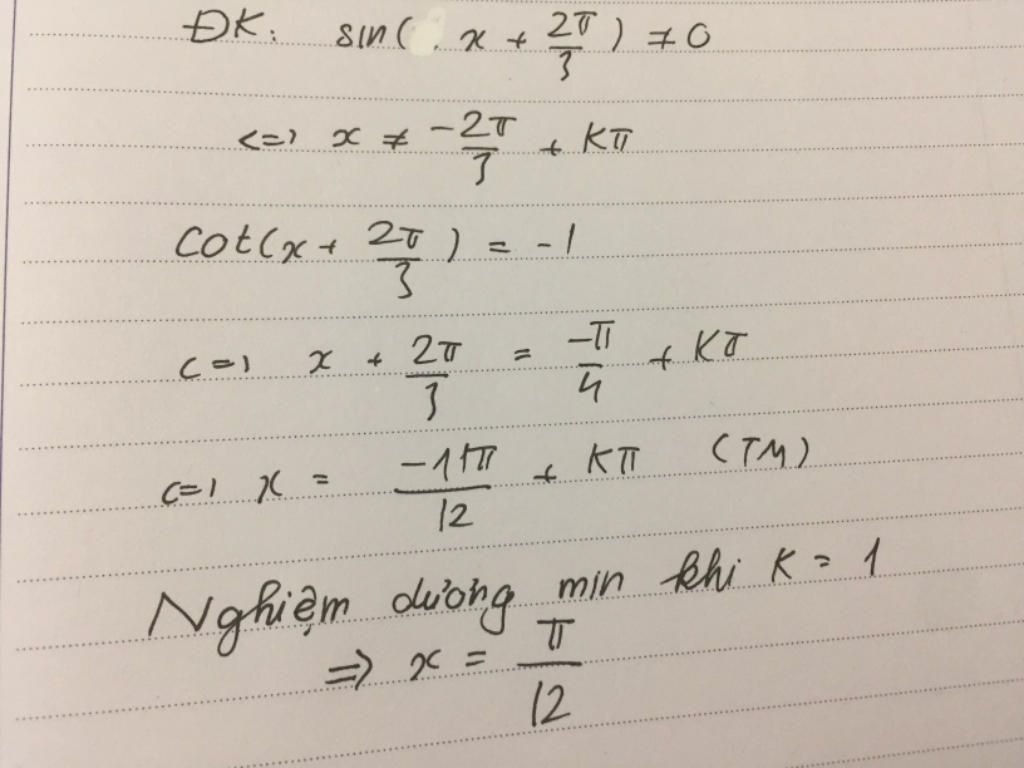 ĐK: sin( x + 2π/3 ) ≠ 0
<=> x ≠ -2π/3 + Kπ
Cot(x + 2π/3 ) = -1
<=> x + 2π/3 = -π/4 + Kπ
<=> x = -11π/12 + Kπ (TM)
Nghiệm dương min khi K = 1
=> x = π/12